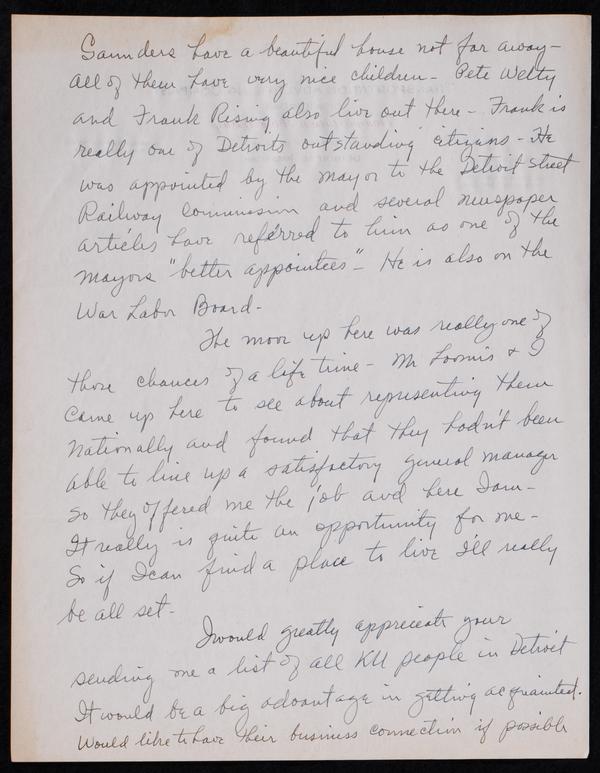 Saunders have a beautiful house not far away-
All of them have very nice children- Pete Welty
and Frank Rising also live out there - Frank is
really one of Detroits outstanding citizens - He
was appointed by the mayor to the Detroit Street
Railway Commission and several newspaper
articles have referred to him as one of the
mayors "better appointees" - He is also on the
War Labor Board-
The move up here was really one of
those chances of a life time - Mr Loomis & I
came up here to see about representing them
nationally and found that they hadn't been
able to line up a satisfactory general manager
so they offered me the job and here I am-
It really is quite an opportunity for me-
So if I can find a place to live I'll really
be all set-
I would greatly appreciate your
sending me a list of all KU people in Detroit
It would be a big advantage in getting acquainted.
Would like to have their business connection if possible